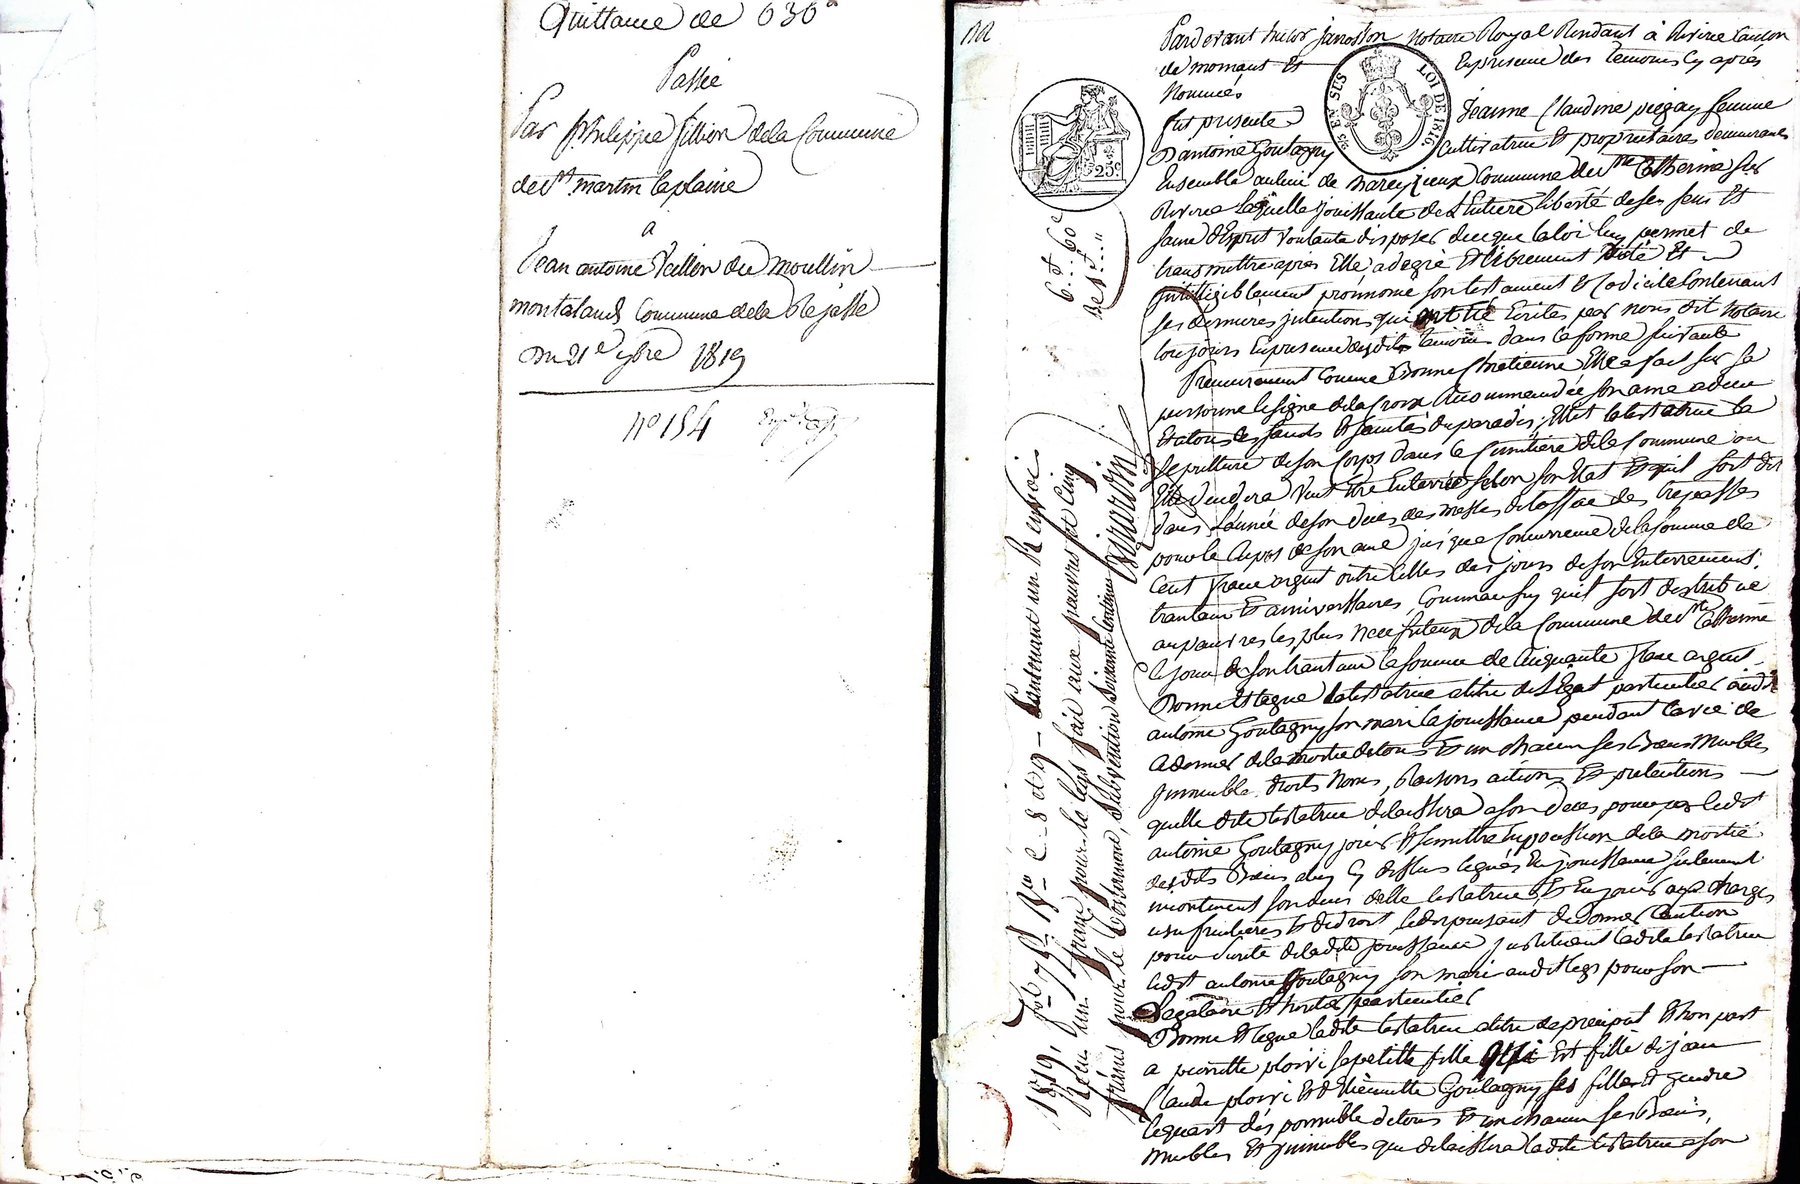 Quittance de 630
Passée
Par philippe fillion de la Commune
de St martin la plaine
a
Jean antoine Vallon du Moullin
montaland Commune de la
Du 21e 9bre 1819
No 154
Pardevant Notaire Royal Résidant à Rivirie Canton
de mornant Et En presence des temoins Cy après
Nommés
fut presente Jeanne Claudine femme
D'antoine Goutagny Cultivatrice Et proprietaire demeurant
Ensemble au lieu de Commune de Ste Catherine sur
Rivirie Laquelle jouissante de L'Entiere liberté de ses sens Et
saine d'Esprit voulante disposer de ce que la loi luy permet de
transmettre après Elle, a de gré Et librement dicté Et
Intelligiblement prononcé son testament Et Codicile Contenant
ses dernieres intentions qui ont été Ecrites par nous dit Notaire
toujours En presence desdits temoins dans la forme suivante
Premierement Comme Bonne Chretienne Elle a fait sur sa
personne le signe de la Croix Recommandée son ame a dieu
Et a tous les saints Et saintes du paradis, Elit la testatrice la
sepulture de son Corps dans le Cimitière de la Commune ou
Elle Viendra Veut être Enterrée selon son Etat Et qu'il soit dit
dans L'année de son deces des messes de l'office des trepassés
pour le Repos de son ame jusque Concurrence de la somme de
Cent franc argent outre Celles des jours de son Enterrement,
trantain Et anniverssaires, qu'il soit distribué
au pauvres les plus necessiteux de la Commune de Ste Catherine
le jour de son trantain la somme de Cinquante franc argent
Donne Et legue la testatrice a titre de Legat particulier audit
antoine Goutagny son mari la jouissance pendant la vie de
Ce dernier de la moitié de tous Et un chacun ses Biens Meubles
Immeuble, droits Noms, Raisons actions Et pretentions
quelle dite testatrice delaissera a son deces pour par ledit
antoine Goutagny jouir Et se mettre En possession de la moitié
desdits Biens Cy dessus legués En jouissance seulement
incontinent son deces d'elle testatrice, Et En jouir aux charges
usufruitieres Et de droit, le dispensant de donner Caution
pour sureté de ladite jouissance instituant ladite testatrice
ledit antoine Goutagny son mari audit legs pour son
Legataire Et heritier particulier
Donne Et legue ladite testatrice a titre de preciput Et hors part
a pierrette ploivi sa petitte fille qui Est fille de jean
Claude ploivi Et d'Etiennette Goutagny ses fille Et gendre
le quart disponible de tous Et un chacun ses Biens,
meubles Et immeubles que delaissera ladite testatrice a son
25 EN SUS
LOI DE 1816
25c
6.f. 60c
Contenant un Renvoi
Reçu un franc pour le legs fait aux pauvres Et Cinq
francs pour le Testament, subvention soixante Centimes